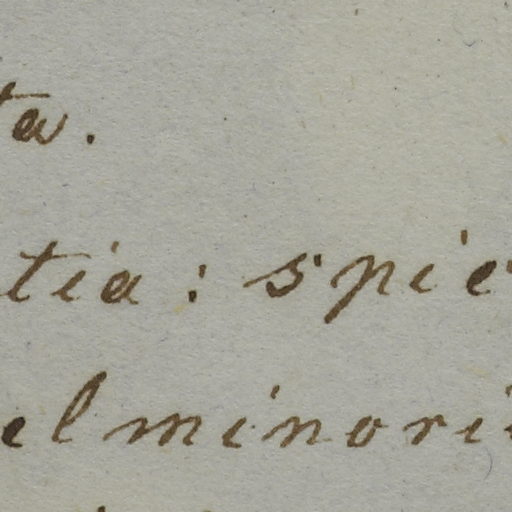 ta.
tia: spic
el minori